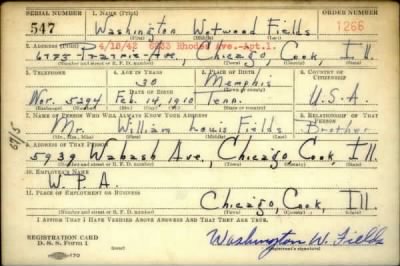 SERIAL NUMBER 1. NAME (Print) ORDER NUMBER
547 Washington Wetwood Fields 1266
(First) (Middle) (Last)
2. ADDRESS (Print) 4/18/42 Rhodes Ave.-Apt.1.
Prairie Ave., Chicago, Cook, Ill.
(Number and street or R. F. D. number) (Town) (County) (State)
3. TELEPHONE 4. AGE IN YEARS 5. PLACE OF BIRTH 6. COUNTRY OF CITIZENSHIP
30 Memphis
DATE OF BIRTH
Nor. 5294 Feb. 14, 1910 Tenn. U.S.A.
(Exchange) (Number) (Mo.) (Day) (Yr.) (State or country)
7. NAME OF PERSON WHO WILL ALWAYS KNOW YOUR ADDRESS 8. RELATIONSHIP OF THAT PERSON
Mr. William Louis Fields Brother
(Mr., Mrs., Miss) (First) (Middle) (Last)
9. ADDRESS OF THAT PERSON
5939 Wabash Ave., Chicago, Cook, Ill.
(Number and street or R. F. D. number) (Town) (County) (State)
10. EMPLOYER'S NAME
W.P.A.
11. PLACE OF EMPLOYMENT OR BUSINESS
Chicago, Cook, Ill.
(Number and street or R. F. D. number) (Town) (County) (State)
I AFFIRM THAT I HAVE VERIFIED ABOVE ANSWERS AND THAT THEY ARE TRUE.
REGISTRATION CARD
D. S. S. FORM 1
Washington W. Fields
(Registrant's signature)